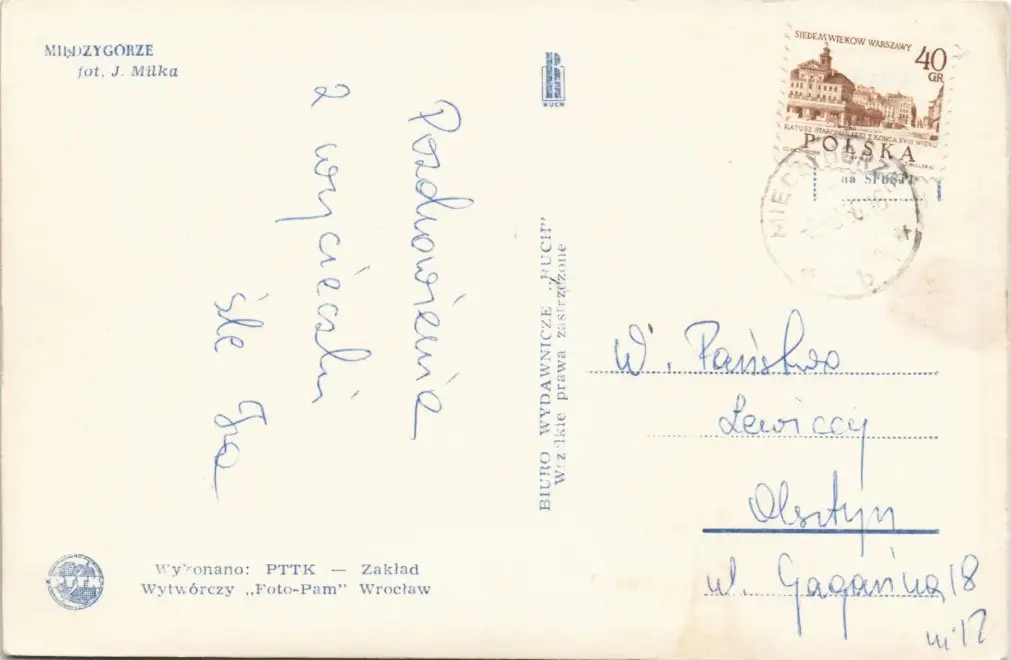 MIĘDZYGÓRZE
fot. J. Milka
Pozdrowienia
z wycieczki
śle Iza
Wykonano: PTTK — Zakład
Wytwórczy „Foto-Pam" Wrocław
PTTK
RUCH
BIURO WYDAWNICZE „RUCH"
Wszelkie prawa zastrzeżone
SIEDEM WIEKÓW WARSZAWY
40
GR
RATUSZ STAROMIEJSKI Z KOŃCA XVIII WIEKU
POLSKA
MIĘDZYGÓRZE
W. Państwo
Lewiccy
Olsztyn
ul. Gagarina 18
m 12